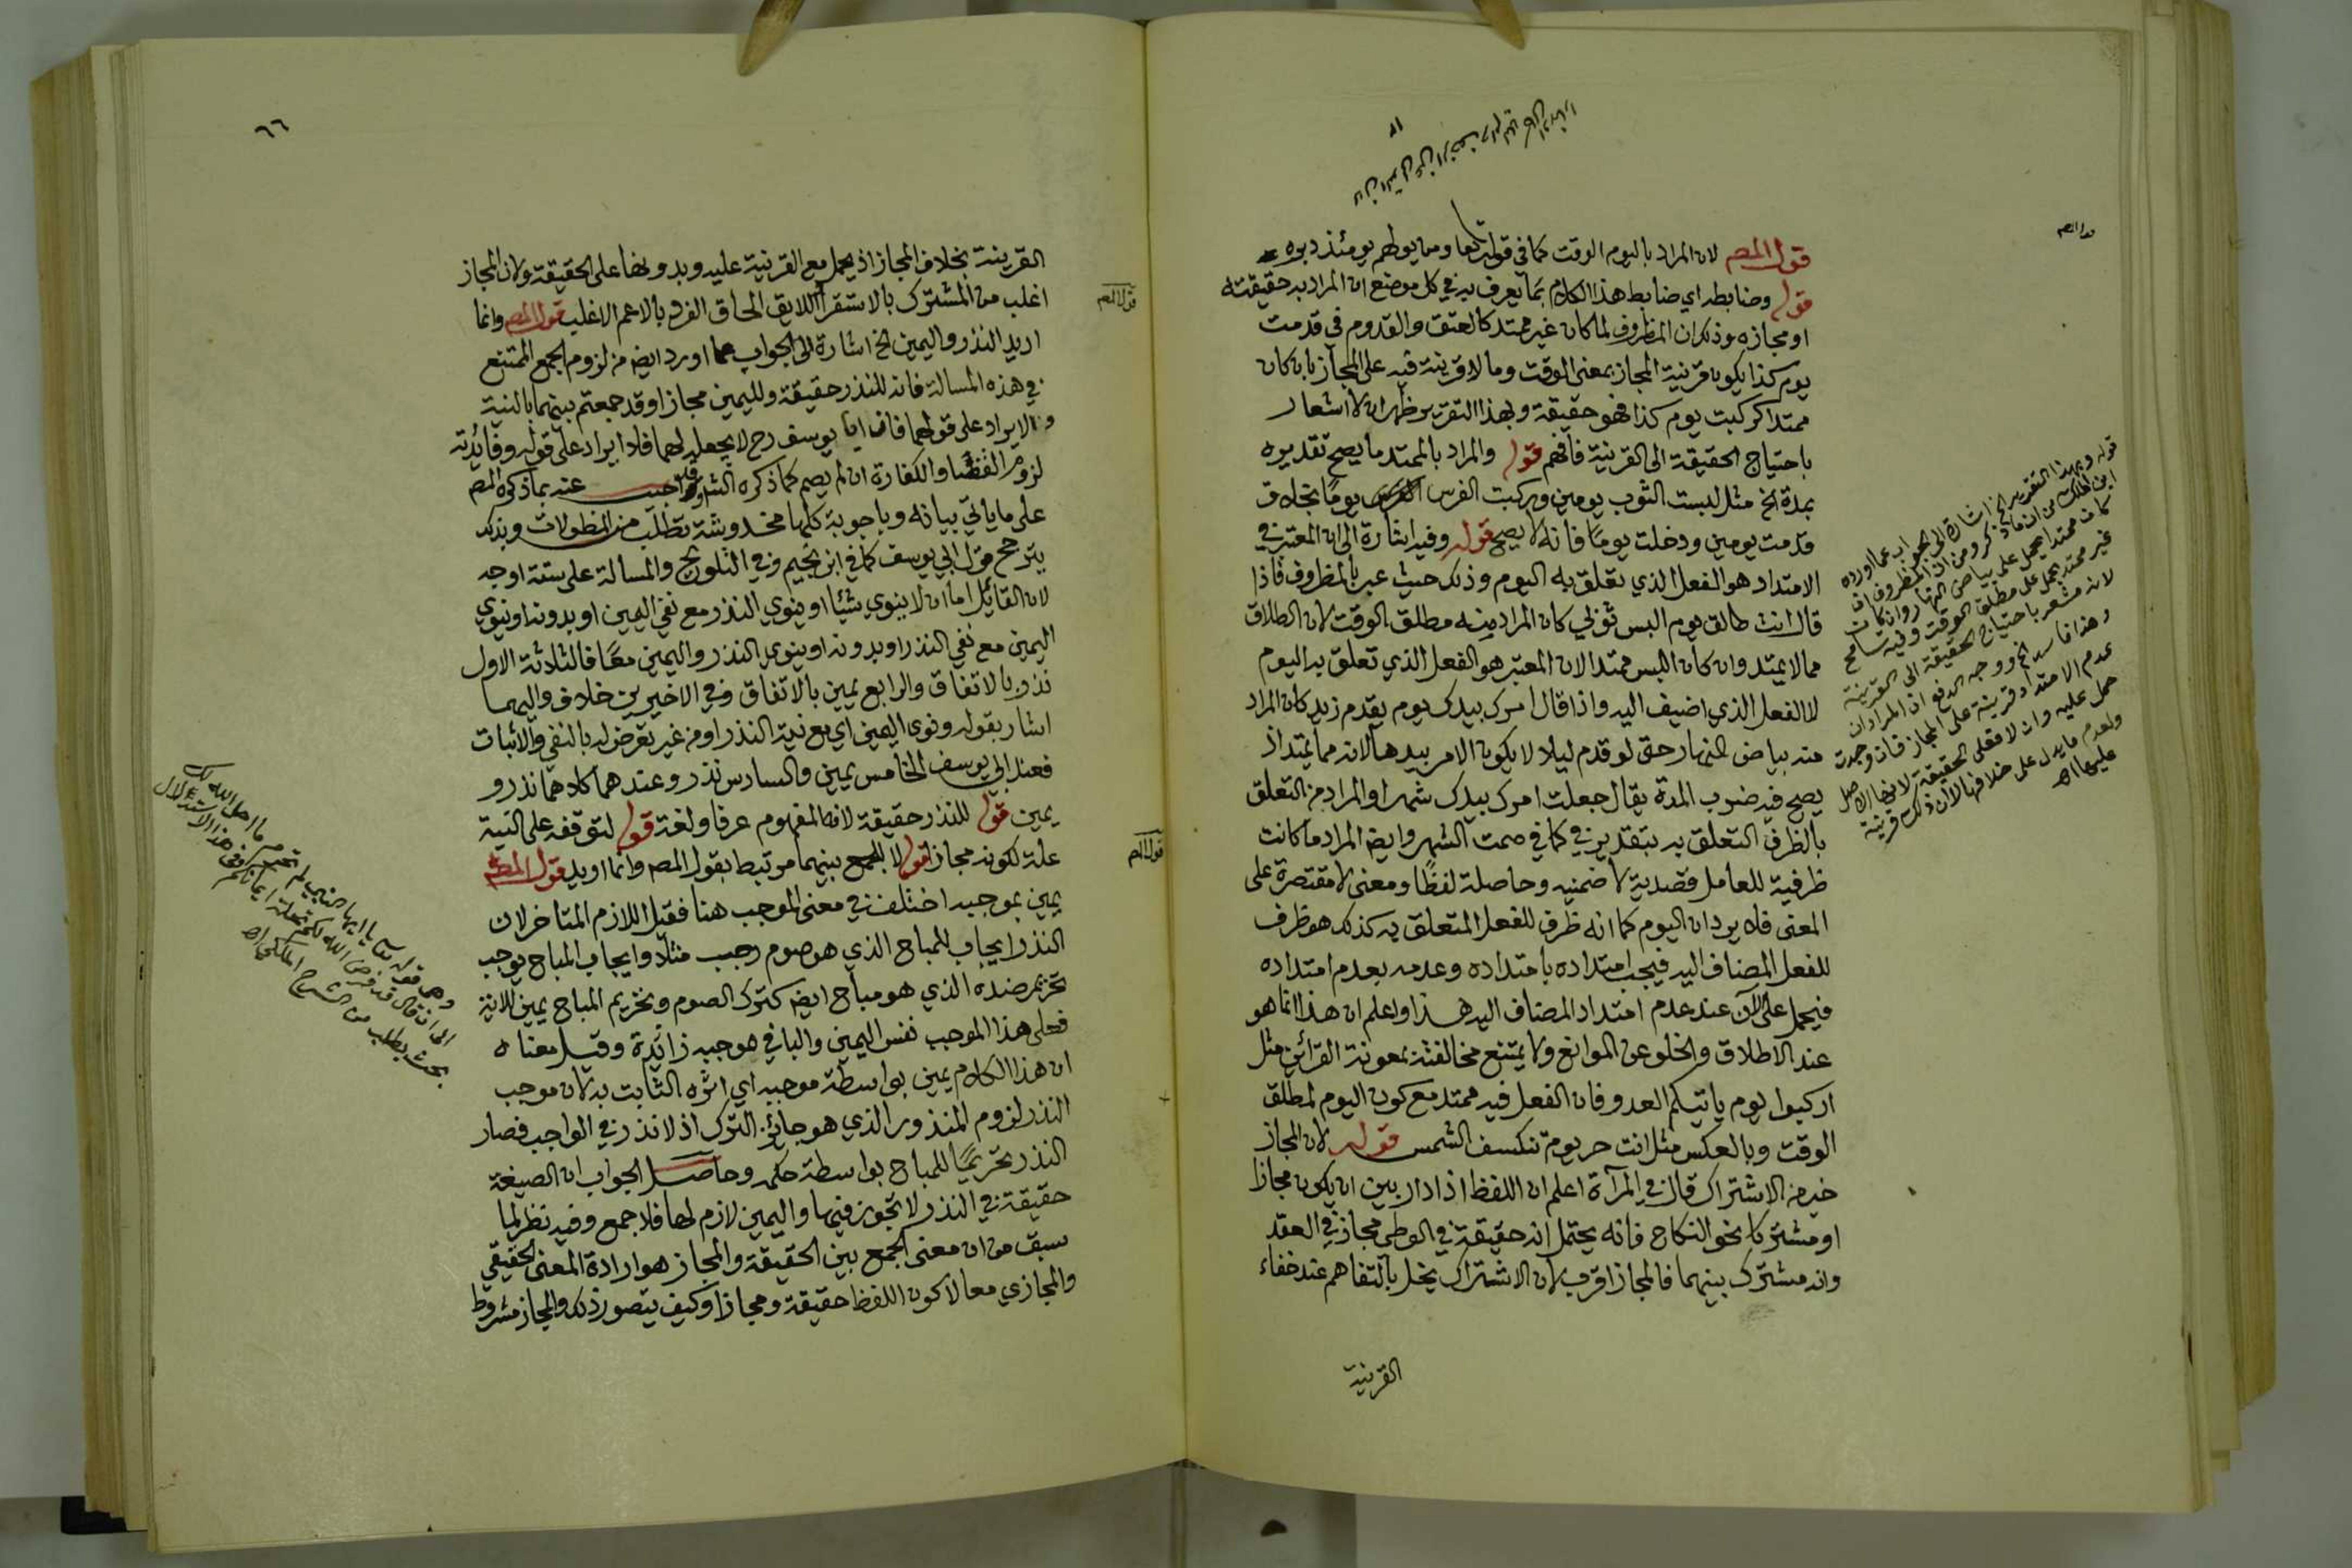 قول المصه لان المراد باليوم الوقت كما في قوله تعا ومن يولهم يومئذ دبره
قوله وضابطه اي ضابط هذا الكلام بما يعرف به في كل موضع ان المراد به حقيقته
او مجازه وذلك ان المظروف لما كان غير ممتد كالعتق والقدوم في قدمت
يوم كذا يكون قرينة المجاز بمعنى الوقت وما لا قرينة فيه على المجاز بان كان
ممتدا كركبت يوم كذا فهو حقيقة وبهذا التقرير ظهر ان لا اشعار
باحتياج الحقيقة الى القرينة فافهم قوله والمراد بالممتد ما يصح تقديره
بمدة الخ مثل لبست الثوب يومين وركبت الفرس يومًا بخلاف
قدمت يومين ودخلت يومًا فانه لا يصح قوله وفيه اشارة الى ان المعتبر في
الامتداد هو الفعل الذي تعلق به اليوم وذلك حيث عبر بالمظروف فاذا
قال انت طالق يوم البس ثوبي كان المراد منه مطلق الوقت لان الطلاق
مما لا يمتد وان كان اللبس ممتدا لان المعتبر هو الفعل الذي تعلق به اليوم
لا الفعل الذي اضيف اليه واذا قال امرك بيدك يوم يقدم زيد كان المراد
منه بياض النهار حتى لو قدم ليلا لا يكون الامر بيدها لانه مما يمتد اذ
يصح فيه ضرب المدة يقال جعلت امرك بيدك شهرا والمراد من التعلق
بالظرف التعلق به بتقدير في كما في صمت الشهر وايضا المراد ما كانت
ظرفية للعامل قصدية لا ضمنية وحاصلة لفظًا ومعنى لا مقتصرة على
المعنى فلا يرد ان اليوم كما انه ظرف للفعل المتعلق به كذلك هو ظرف
للفعل المضاف اليه فيجب امتداده بامتداده وعدمه بعدم امتداده
فيحمل على الآن عند عدم امتداد المضاف اليه هذا واعلم ان هذا انما هو
عند الاطلاق والخلو عن الموانع ولا يمتنع مخالفته بمعونة القرائن مثل
اركبوا يوم ياتيكم العدو فان الفعل فيه ممتد مع كون اليوم لمطلق
الوقت وبالعكس مثل انت حر يوم تنكسف الشمس قوله لان المجاز
خير من الاشتراك قال في المرآة اعلم ان اللفظ اذا دار بين ان يكون مجازا
او مشتركا نحو النكاح فانه يحتمل انه حقيقة في الوطى مجاز في العقد
وانه مشترك بينهما فالمجاز اقرب لان الاشتراك يخل بالتفاهم عند خفاء
القرينة
قوله وبهذا التقرير الخ اشارة الى الجواب عما اورده
ابن الملك من ان ما ذكر من ان المظروف ان
كان ممتدا يحمل على بياض النهار وان كان
غير ممتد يحمل على مطلق الوقت وفيه تسامح
لانه مشعر باحتياج الحقيقة الى القرينة
وهذا فاسد الخ ووجه الدفع ان المراد ان
عدم الامتداد قرينة على المجاز فان وجدت
حمل عليه وان لا فعلى الحقيقة لانها الاصل
ولعدم ما يدل على خلافها لا لان ذلك قرينة
عليها اه
٦٦
القرينة بخلاف المجاز اذ يحمل مع القرينة عليه وبدونها على الحقيقة ولان المجاز
اغلب من المشترك بالاستقراء اللايق الحاق الفرد بالاعم الاغلب قول المصه وانما
اريد النذر واليمين الخ اشارة الى الجواب عما اورد ايضا من لزوم الجمع الممتنع
في هذه المسالة فانه للنذر حقيقة ولليمين مجازا وقد جمعتم بينهما بالنية
والايراد على قولهما فان ابا يوسف رح لا يجعله لهما فلا ايراد على قوله وفائدته
لزوم القضا والكفارة ان لم يصم كما ذكره الشارح وقد اجيب عنه بما ذكره المصه
على ما ياتي بيانه وباجوبة كلها مخدوشة تطلب من المطولات وبذلك
يترجح قول ابي يوسف كما في ابن نجيم وفي التلويح والمسالة على ستة اوجه
لان القائل اما ان لا ينوي شيئا او ينوي النذر مع نفي اليمين او بدونه او ينوي
اليمين مع نفي النذر او بدونه او ينوي النذر واليمين معًا فالثلاثة الاول
نذر بالاتفاق والرابع يمين بالاتفاق وفي الاخيرين خلاف واليهما
اشار بقوله ونوى اليمين اي مع نية النذر او من غير تعرض له بالنفي والاثبات
فعند ابي يوسف الخامس يمين والسادس نذر وعندهما كلاهما نذر و
يمين قوله للنذر حقيقة لانه المفهوم عرفا ولغة قوله لتوقفه على النية
علة لكونه مجازا قوله لا للجمع بينهما مرتبط بقول المصه وانما اريد قول المصه
يمين بموجبه اختلف في معنى الموجب هنا فقيل اللازم المتاخر لان
النذر ايجاب للمباح الذي هو صوم رجب مثلا وايجاب المباح يوجب
تحريم ضده الذي هو مباح ايضا كترك الصوم وتحريم المباح يمين للاية
فعلى هذا الموجب نفس اليمين والبا في موجبه زائدة وقيل معناه
ان هذا الكلام يمين بواسطة موجبه اي اثره الثابت به لان موجب
النذر لزوم المنذور الذي هو جائز الترك اذ لا نذر في الواجب فصار
النذر تحريمًا للمباح بواسطة حكمه وحاصل الجواب ان الصيغة
حقيقة في النذر لا تجوز فيها واليمين لازم لها فلا جمع وفيه نظر لما
سبق من ان معنى الجمع بين الحقيقة والمجاز هو ارادة المعنى الحقيقي
والمجازي معا لا كون اللفظ حقيقة ومجازا وكيف يتصور ذلك والمجاز مشروط
وهي قوله تعا يا ايها النبي لم تحرم ما احل الله لك
الى ان قال قد فرض الله لكم تحلة ايمانكم وفي هذا الاستدلال
بحث يطلب من الشرح الملكي اه
قول المصه
قول المصه